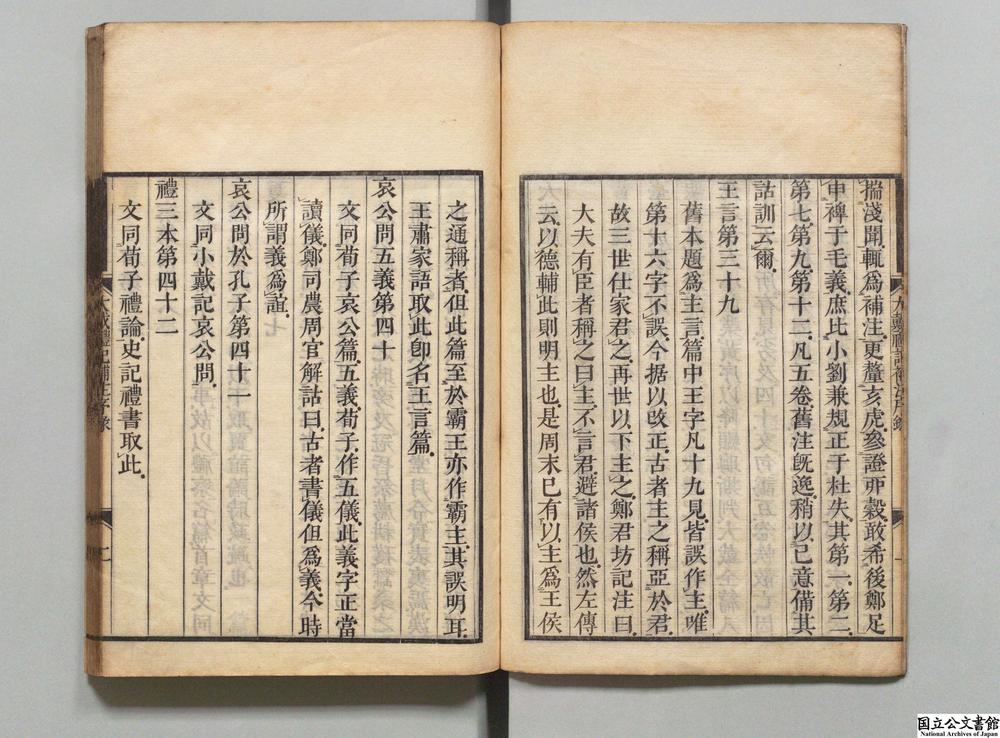 揣淺聞輒爲補注更釐亥虎參證丣穀敢希後鄭足
申裨于毛義庶比小劉兼規正于杜失其第一第二
第七第九第十二凡五卷舊注旣逸稍以己意備其
詁訓云爾
王言第三十九
舊本題爲主言篇中王字凡十九見皆誤作主唯
第十六字不誤今据以改正古者主之稱亞於君
故三世仕家君之再世以下主之鄭君坊記注曰
大夫有臣者稱之曰主不言君避諸侯也然左傳
云以德輔此則明主也是周末已有以主爲王侯
大戴禮記補注序錄
之通稱者但此篇至於霸王亦作霸主其誤明耳
王肅家語取此卽名王言篇
哀公問五義第四十
文同荀子哀公篇五義荀子作五儀此義字正當
讀儀鄭司農周官解詁曰古者書儀但爲義今時
所謂義爲誼
哀公問於孔子第四十一
文同小戴記哀公問
禮三本第四十二
文同荀子禮論史記禮書取此
大戴禮記補注序錄
国立公文書館
National Archives of Japan